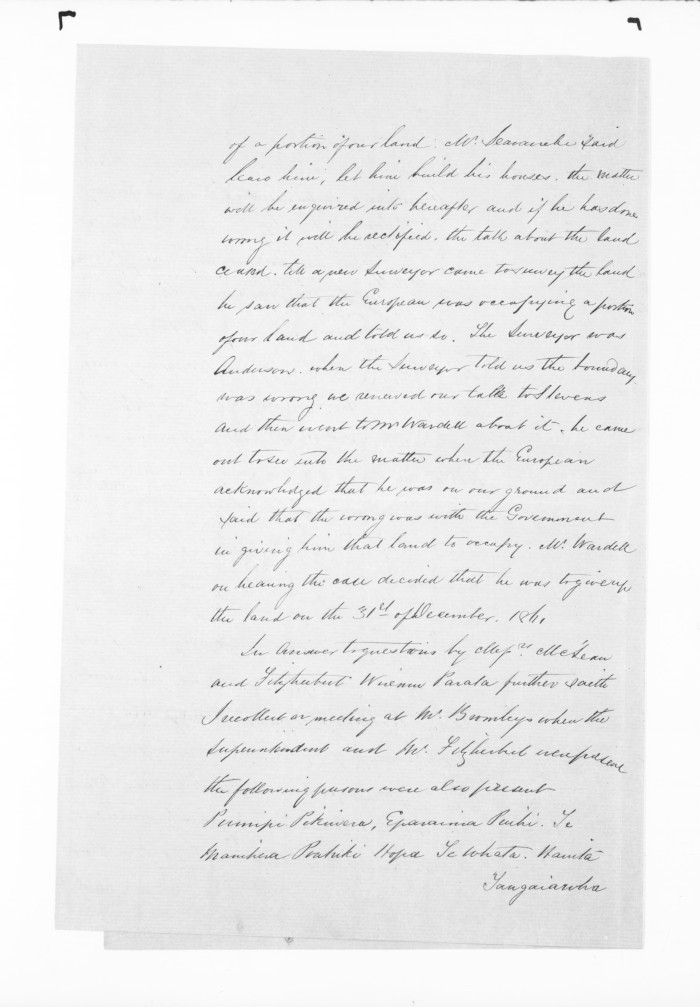 of a portion of our land. Mr. Searancke said
leave him, let him build his houses. the matter
will be enquired into hereafter and if he has done
wrong it will be rectified. the talk about the land
ceased. till a new Surveyor came to survey the land
he saw that the European was occupying a portion
of our land and told us so. The Surveyor was
Anderson. when the Surveyor told us the boundary
was wrong we renewed our talk to Stevens
and then went to Mr Wardell about it. he came
out to see into the matter when the European
acknowledged that he was on our ground and
said that the wrong was with the Government
in giving him that land to occupy. Mr. Wardell
on hearing the case decided that he was to give up
the land on the 31st of December. 1861.
In answer to questions by Messrs. McLean
and Fitzherbert Wiremu Parata further saith
I recollect a meeting at Mr. Bromleys when the
Superintendent and Mr. Fitzherbert were present
the following persons were also present
Pikiwera, Eparaima Te
Manihera Hopa Te Whata.